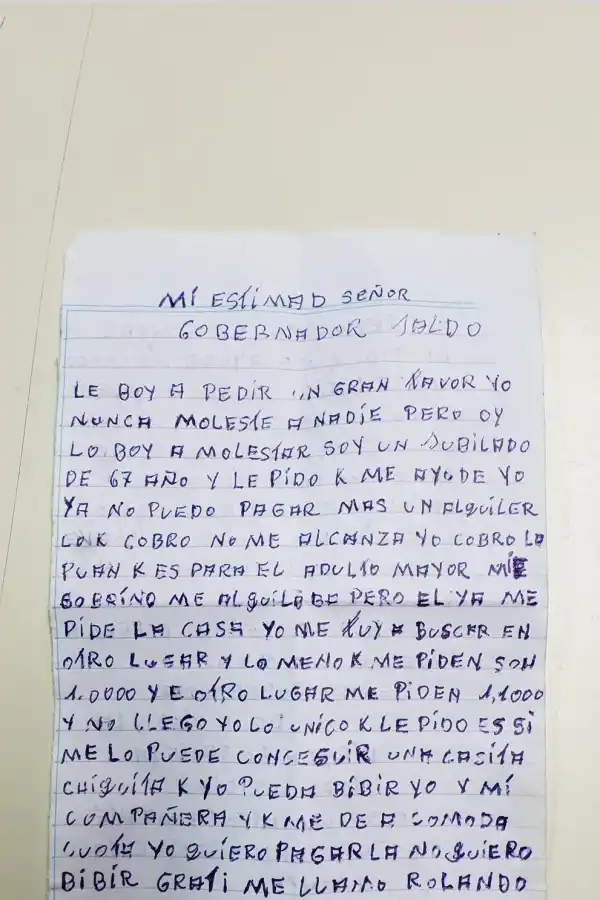 MI ESTIMAD SEÑOR
GOBERNADOR JALDO
LE BOY A PEDIR UN GRAN FAVOR YO
NUNCA MOLESTE A NADIE PERO OY
LO BOY A MOLESTAR SOY UN JUBILADO
DE 67 AÑO Y LE PIDO K ME AYUDE YO
YA NO PUEDO PAGAR MAS UN ALQUILER
LOK COBRO NO ME ALCANZA YO COBRO LA
PUAN K ES PARA EL ADULTO MAYOR MIE
SOBRINO ME ALQUILABA PERO EL YA ME
PIDE LA CASA YO ME FUY A BUSCAR EN
OTRO LUGAR Y LO MENO K ME PIDEN SON
1.0000 Y E OTRO LUGAR ME PIDEN 1,1000
Y NO LLEGO YO LO UNICO K LE PIDO ES SI
ME LO PUEDE CONCEGUIR UNA CASITA
CHIQUITA K YO PUEDA BIBIR YO Y MI
COMPAÑERA Y K ME DE A COMODA
CUOTA YO QUIERO PAGARLA NO QUIERO
BIBIR GRATI ME LLAMO ROLANDO